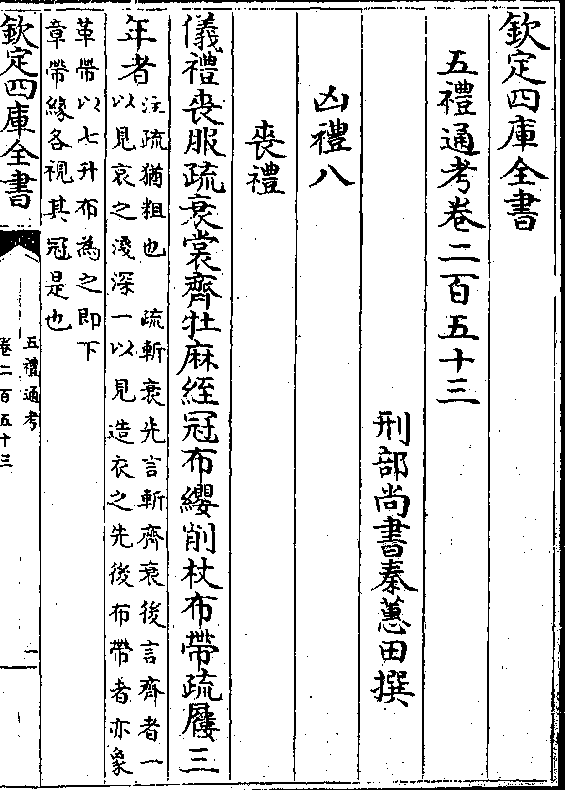 欽定四庫全書
五禮通考卷二百五十三
刑部尚書秦蕙田撰
凶禮八
喪禮
儀禮喪服疏衰裳齊牡麻絰冠布纓削杖布帶疏屨三
年者
注疏猶粗也　疏斬衰先言斬齊衰後言齊者一
以見哀之淺深一以見造衣之先後布帶者亦象
革帶以七升布為之即下
章帶緣各視其冠是也
欽定四庫全書
五禮通考
卷二百五十三
一